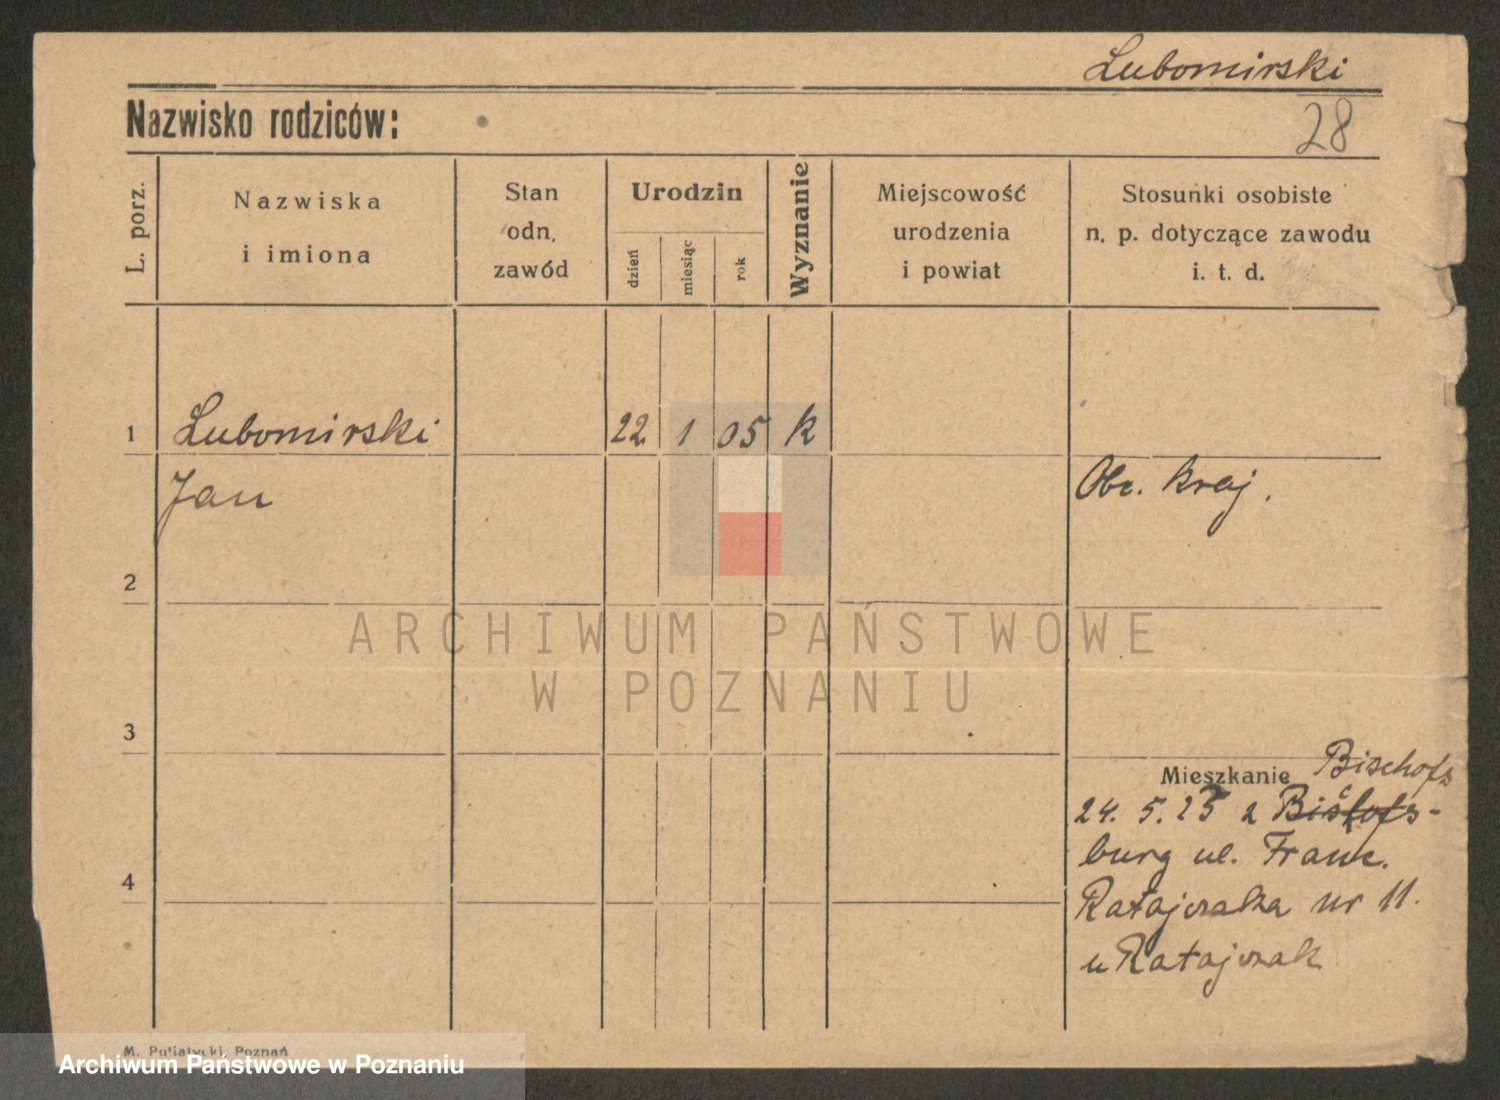 Lubomirski
Nazwisko rodziców:
28
L. porz.
Nazwiska
i imiona
Stan
odn.
zawód
Urodzin
dzień
miesiąc
rok
Wyznanie
Miejscowość
urodzenia
i powiat
Stosunki osobiste
n. p. dotyczące zawodu
i. t. d.
1 Lubomirski 22 1 05 k
Jan
Obc. kraj.
2
ARCHIWUM PAŃSTWOWE
W POZNANIU
3
Mieszkanie Bischofs
24. 5. 25 z
burg ul. Franc.
4
Ratajczaka nr 11.
u Ratajczak
M. Putiatycki, Poznań
Archiwum Państwowe w Poznaniu